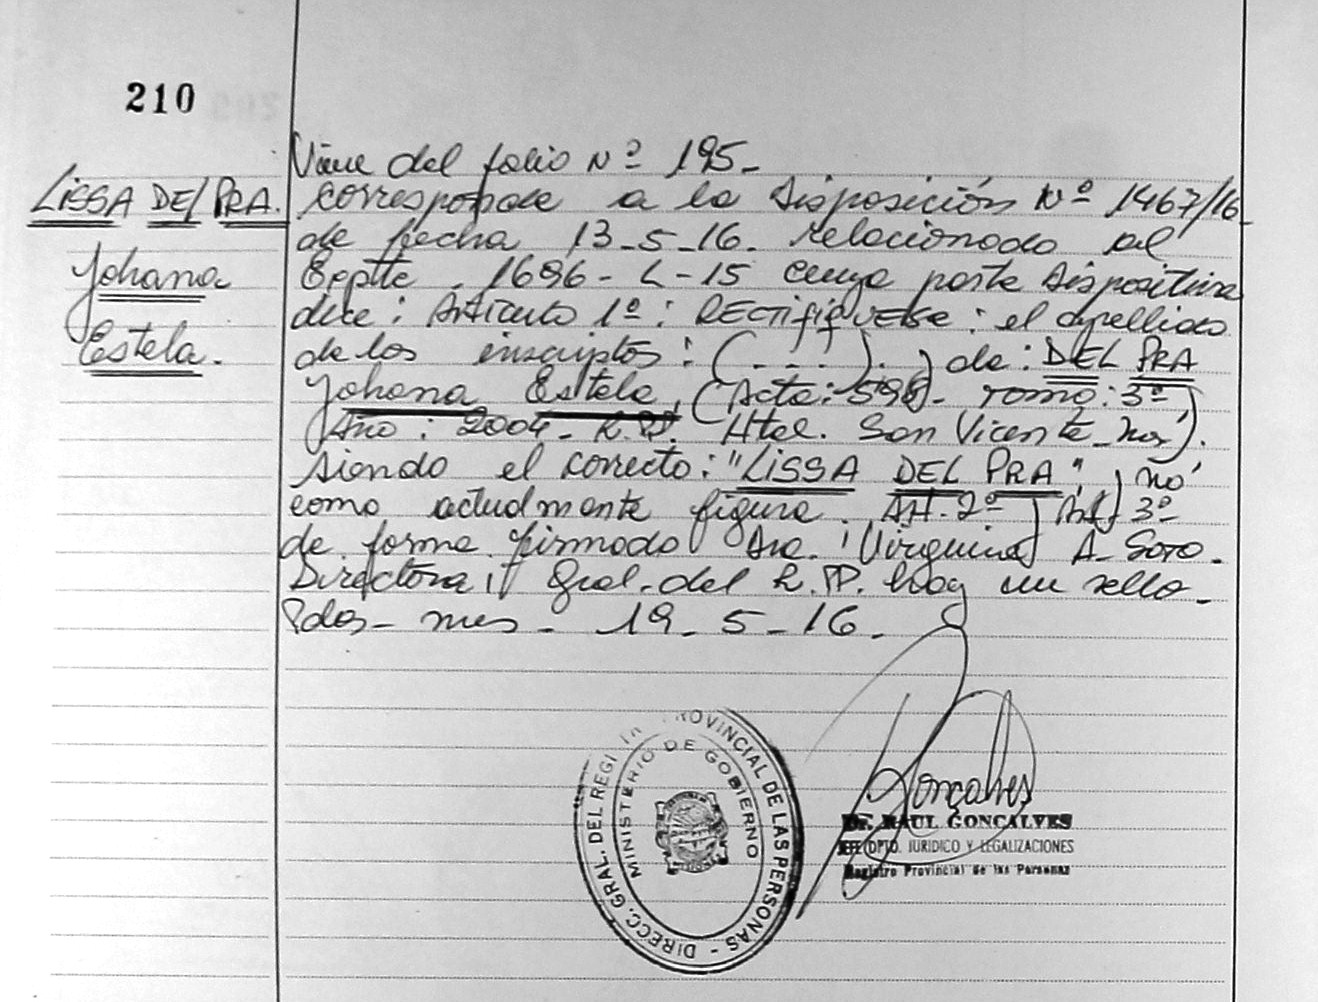 210
LISSA DEL PRA.
Johana
Estela.
Viene del folio Nº 195-
corresponde a la Disposición Nº 1467/16-
de fecha 13-5-16. relacionado al
Exptte. 1696-L-15 cuya parte dispositiva
dice: Artículo 1º: RECTIFIQUESE: el apellido
de los inscriptos: (....). de: DEL PRA
Johana Estela, (Acta: 598- Tomo: 3º
Año: 2004- R.P. Htal. San Vicente
siendo el correcto: "LISSA DEL PRA", no
como actualmente figura. Art. 2º Art 3º
de forma firmado Dra. Virginia A. Soto-
Directora Gral. del R.PP. hay un sello-
Pdos- mes- 19-5-16.
DIRECC. GRAL. DEL REGI PROVINCIAL DE LAS PERSONAS -
MINISTERIO DE GOBIERNO
Goncalves
Dr. RAUL GONCALVES
JEFE DPTO. JURIDICO Y LEGALIZACIONES
Registro Provincial de las Personas